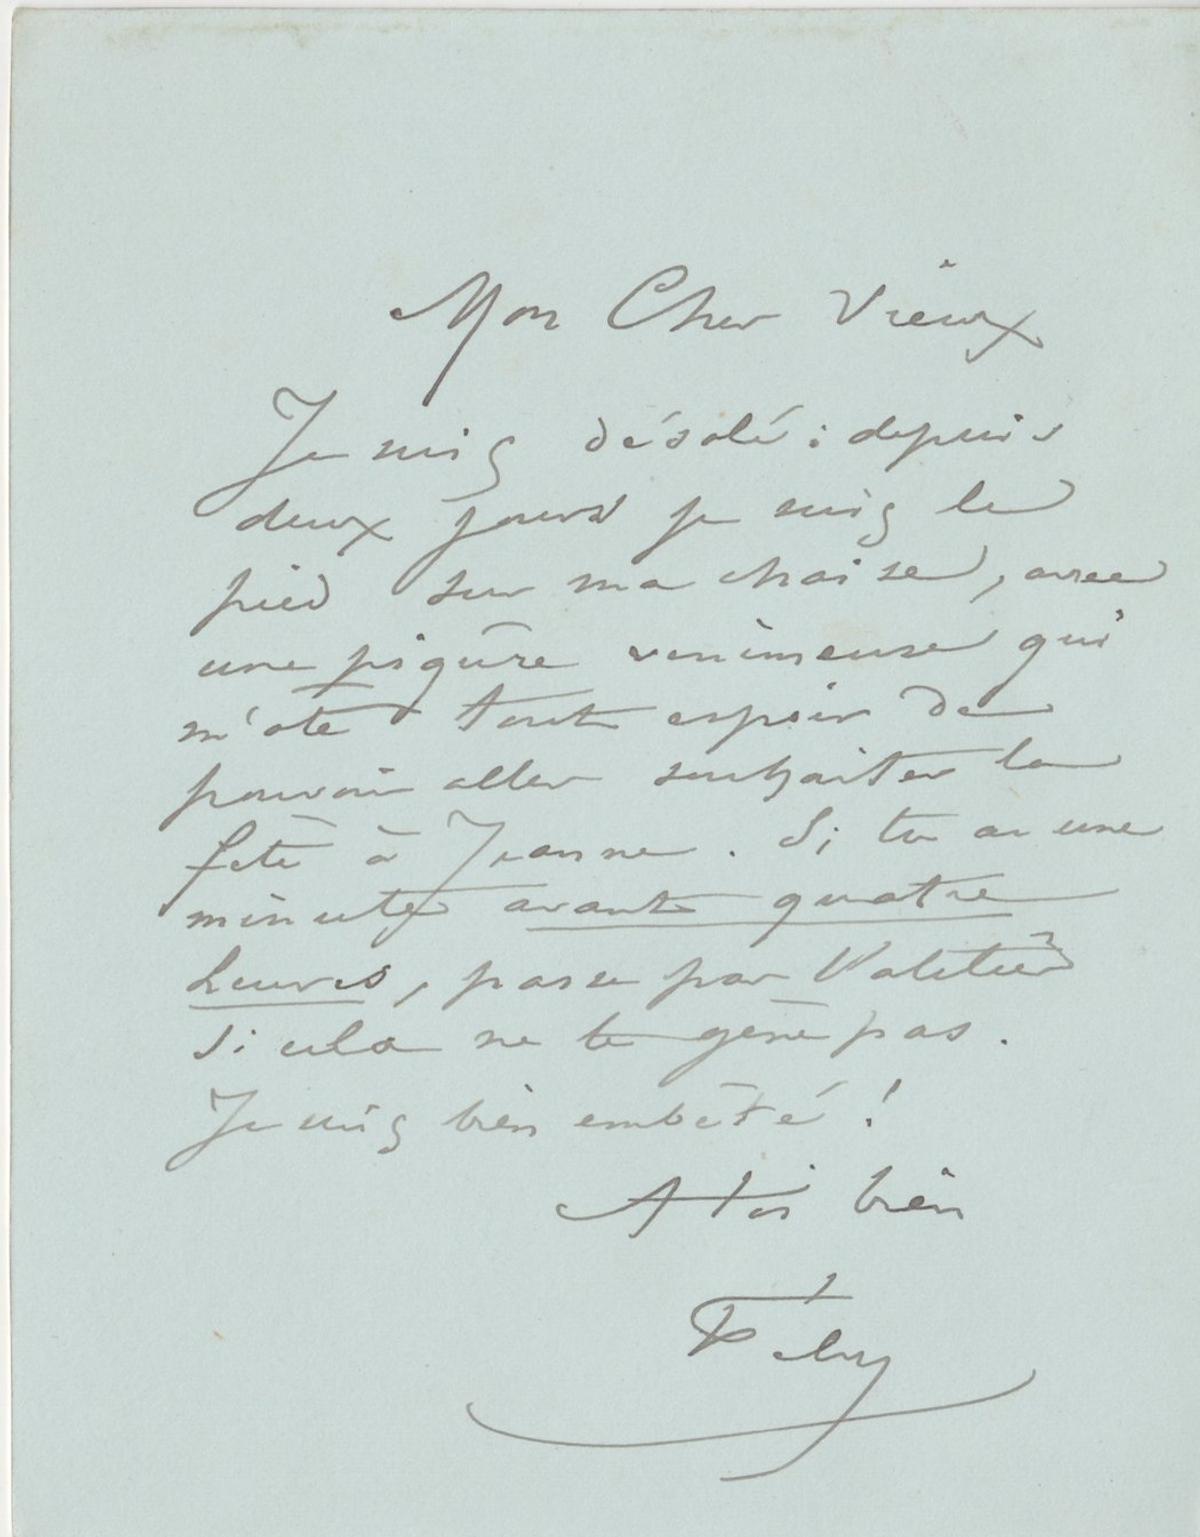 Mon Cher Vieux
Je suis désolé : depuis
deux jours je suis le
pied sur ma chaise, avec
une piqûre venimeuse qui
m'ote tout espoir de
pouvoir aller souhaiter la
fête à Jeanne. Si tu as une
minute avant quatre
heures, passe par
si cela ne te gêne pas.
Je suis bien embêté !
A toi bien